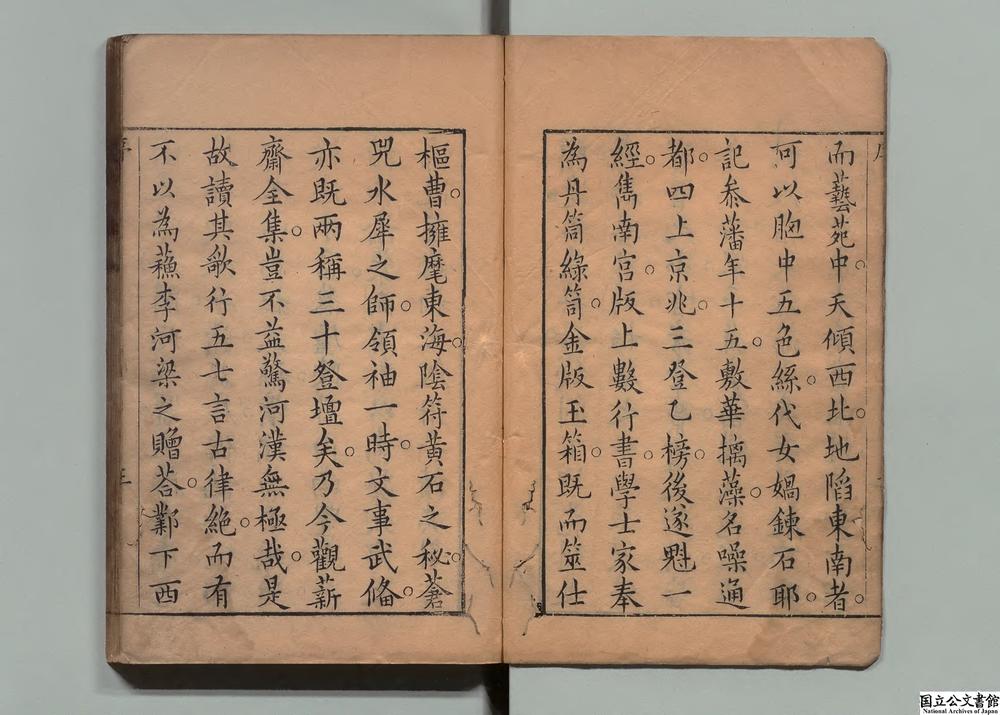 而藝苑中。天傾西北。地陷東南者。
可以胞中五色絲。代女媧鍊石耶。
記叅藩年十五。敷華摛藻。名噪通
都。四上京兆。三登乙榜。後遂魁一
經。雋南宫。版上數行書。學士家奉
為丹筒綠笥。金版玉箱。既而筮仕
樞曹。擁麾東海。陰符黄石之秘。蒼
兕水犀之師。領袖一時。文事武俻。
亦既兩稱三十登壇矣。乃今觀薪
齋全集。豈不益驚河漢無極哉。是
故讀其歌行五七言古律絶。而有
不以為蘓李河梁之贈荅。鄴下西
序
三
国立公文書館
National Archives of Japan